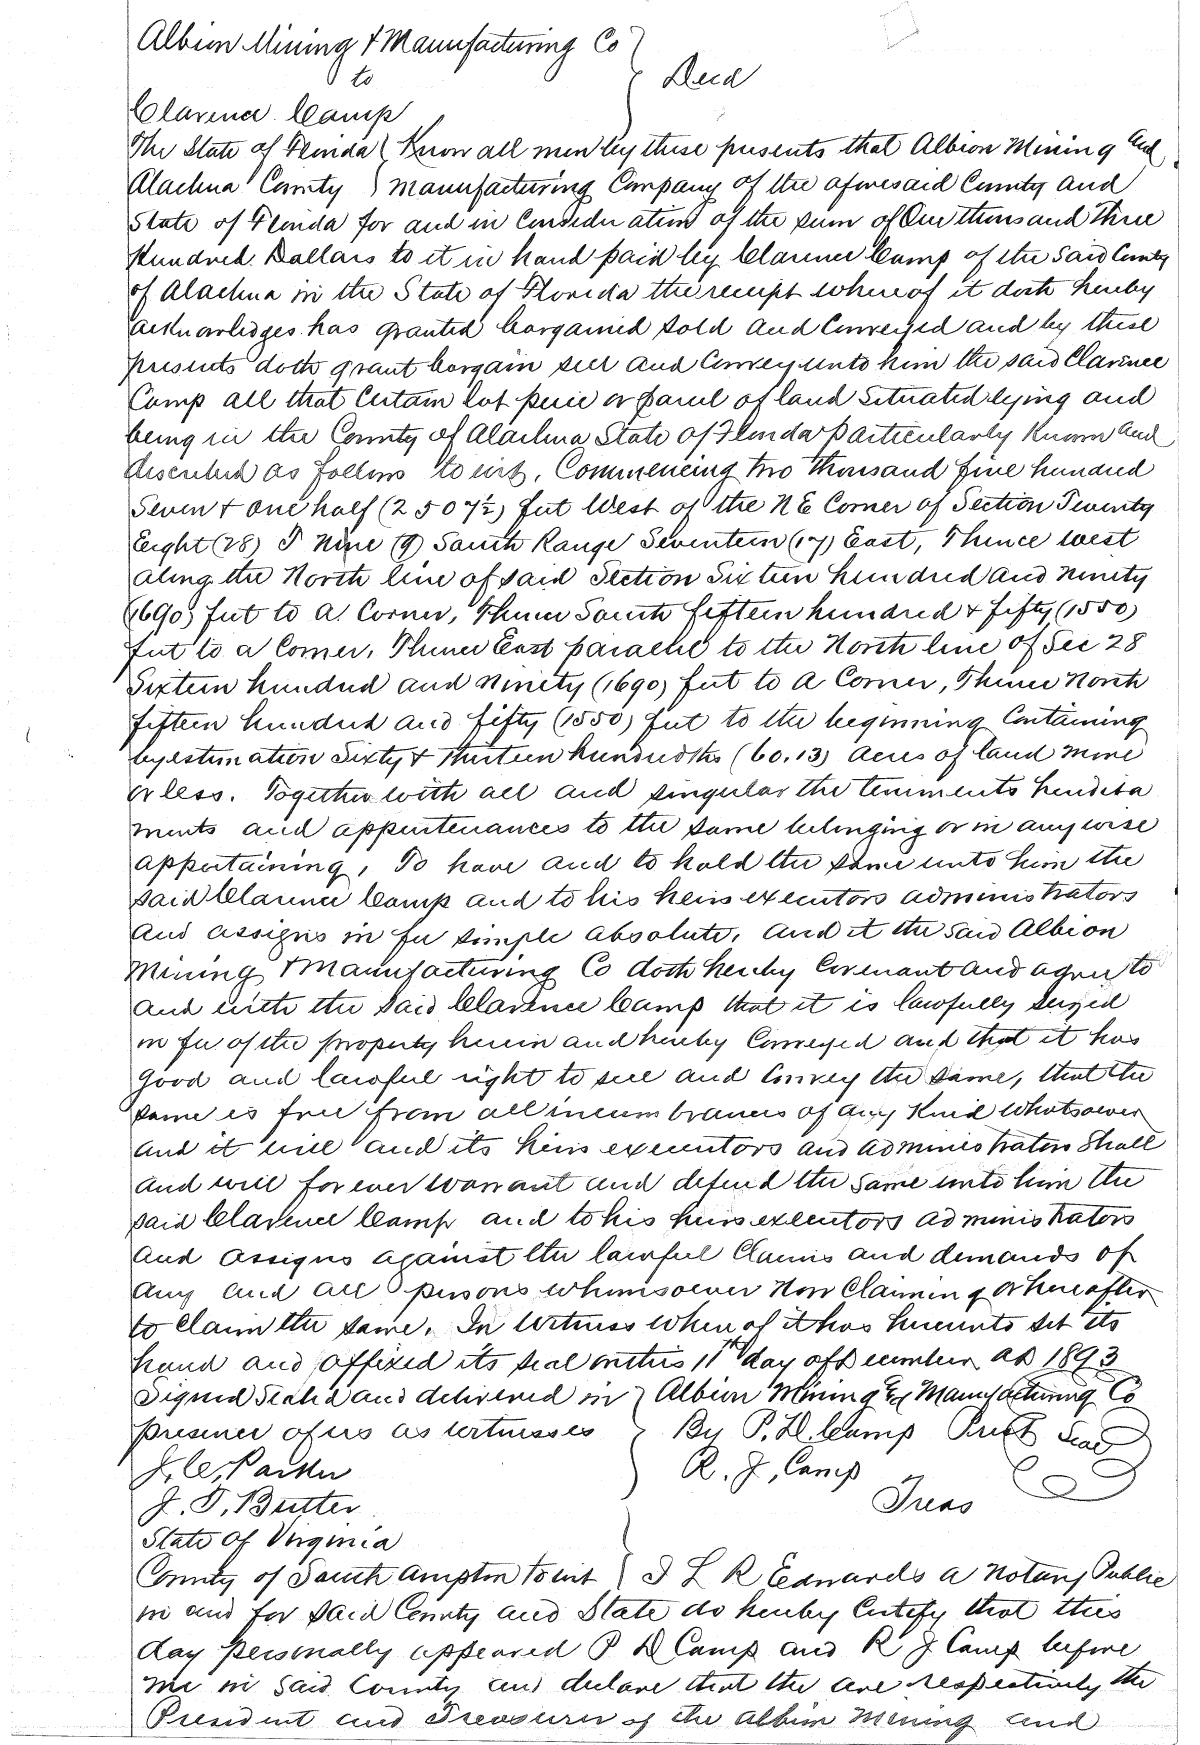 Albion Mining & Manufacturing Co
to
Deed
Clarence Camp
The State of Florida Know all men by these presents that Albion Mining and
Alachua County Manufacturing Company of the aforesaid County and
State of Florida for and in Consideration of the sum of One thousand Three
Hundred Dollars to it in hand paid by Clarence Camp of the said County
of Alachua in the State of Florida the receipt whereof it doth hereby
acknowledges has granted bargained sold and Conveyed and by these
presents doth grant bargain sell and Convey unto him the said Clarence
Camp all that Certain lot peice or parcel of land Situated lying and
being in the County of Alachua State of Florida particularly Known and
described as follows to wit, Commencing two thousand five hundred
Seven & one half (2507½) feet West of the NE Corner of Section Twenty
Eight (28) T Nine (9) South Range Seventeen (17) East, Thence West
along the North line of said Section Sixteen hundred and Ninety
(1690) feet to a Corner, Thence South fifteen hundred & fifty (1550)
feet to a Corner, Thence East paralell to the North line of Sec 28
Sixteen hundred and Ninety (1690) feet to a Corner, Thence North
fifteen hundred and fifty (1550) feet to the beginning Containing
by estimation Sixty & Thirteen hundredths (60.13) acres of land more
or less. Together with all and singular the tenements heredita
ments and appertenances to the same belonging or in any wise
appertaining, To have and to hold the same unto him the
said Clarence Camp and to his heirs executors administrators
and assigns in fee simple absolute. And it the said Albion
Mining & Manufacturing Co doth hereby Covenant and agree to
and with the said Clarence Camp that it is lawfully seized
in fee of the property herein and hereby Conveyed and that it has
good and lawful right to sell and Convey the same, that the
same is free from all incumbrances of any Kind whatsoever
and it will and its heirs executors and administrators Shall
and will forever warrant and defend the same unto him the
said Clarence Camp and to his heirs executors administrators
and assigns against the lawful Claims and demands of
any and all persons whomsoever Now Claiming or hereafter
to claim the same. In Witness whereof it has hereunto set its
hand and affixed its seal on this 11th day of December AD 1893
Signed Sealed and delivered in Albion Mining & Manufacturing Co
presence of us as witnesses By P. D. Camp Prest Seal
J. C. Parker R. J. Camp
J. T. Butler Treas
State of Virginia
County of South ampton to wit I L R Edwards a Notary Public
in and for said County and State do hereby Certify that this
day personally appeared P D Camp and R J Camp before
me in said County and declare that the are respectively the
President and Treasurer of the Albion Mining and